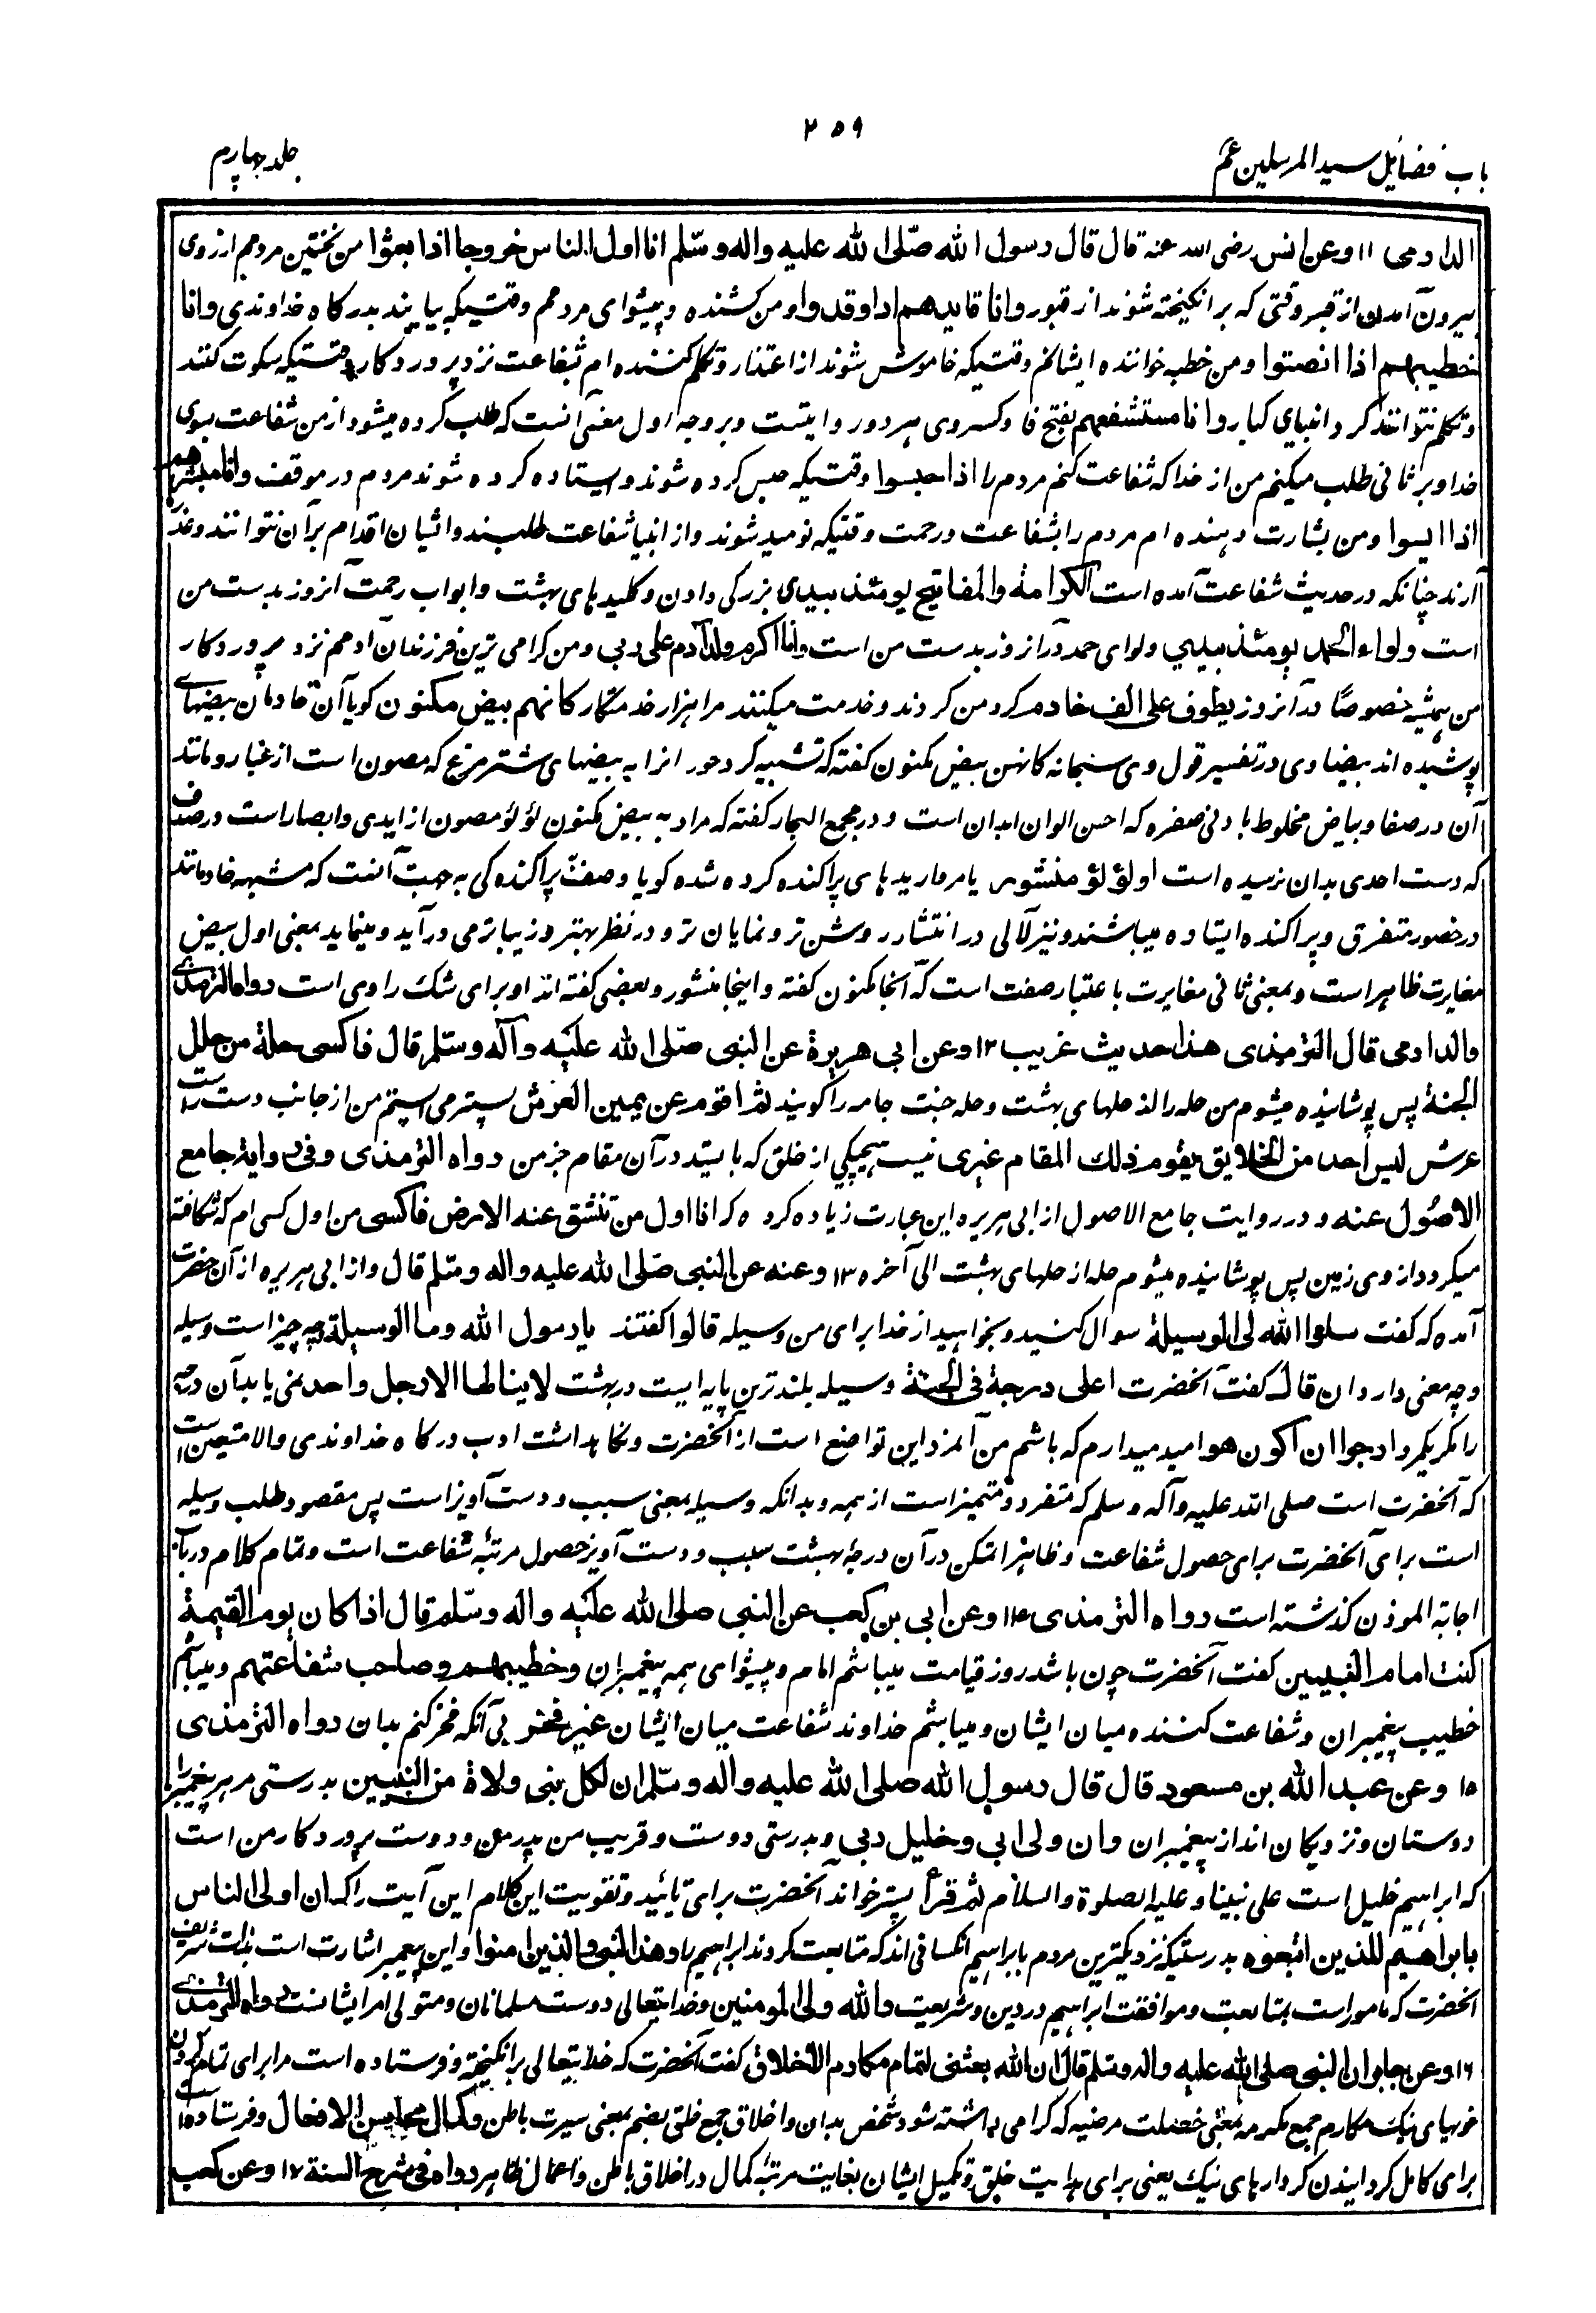 ۲۵۹
باب فضایل سید المرسلین عم
جلد چهارم
الدارمی ۱۱ وعن انس رضی الله عنه قال قال رسول الله صلی الله علیه واله وسلم انا اول الناس خروجا اذا بعثوا من نخستین مردمم از روی
بیرون آمدن از قبر وقتی که برانگیخته شوند از قبور وانا قایدهم اذا وفدوا ومن کشنده و پیشوای مردمم وقتیکه بیایند بدرگاه خداوندی وانا
خطیبهم اذا انصتوا ومن خطبه خواننده ایشانم وقتیکه خاموش شوند از اعتذار وتکلم کننده ام شفاعت نزد پروردگار وقتیکه سکوت کنند
وتکلم نتوانند کرد انبیای کبار وانا مستشفعهم بفتح فا وکسر وی هردو روایتست وبر وجه اول معنی آنست که طلب کرده میشود از من شفاعت بسوی
خدا وبر ثانی طلب میکنم من از خدا که شفاعت کنم مردم را اذا حبسوا وقتیکه حبس کرده شوند وایستاده کرده شوند مردم در موقف وانا مبشرهم
اذا ایسوا ومن بشارت دهنده ام مردم را بشفاعت ورحمت وقتیکه نومید شوند واز انبیا شفاعت طلبند وایشان اقدام بر آن نتوانند وعذر
آرند چنانکه در حدیث شفاعت آمده است الکرامة والمفاتیح یومئذ بیدی بزرگی دادن وکلیدهای بهشت وابواب رحمت آنروز بدست من
است ولواء الحمد یومئذ بیدی ولوای حمد در آنروز بدست من است وانا اکرم ولد آدم علی ربی ومن گرامی ترین فرزندان آدمم نزد پروردگار
من همیشه خصوصًا در آنروز یطوف علی الف خادم گرد من گردند وخدمت میکنند مرا هزار خدمتگار کانهم بیض مکنون گویا آن خادمان بیضهای
پوشیده اند بیضاوی در تفسیر قول وی سبحانه کانهن بیض مکنون گفته که تشبیه کرد حور انرا به بیضهای شترمرغ که مصون است از غبار ومانند
آن در صفا وبیاض مخلوط بادنی صفره که احسن الوان ابدان است ودر مجمع البحار گفته که مراد به بیض مکنون لؤلؤ مصون از ایدی وابصار است در صدف
که دست احدی بدان نرسیده است او لؤلؤ منثور یا مرواریدهای پراکنده کرده شده گویا وصف پراکنده گی به جهت آنست که مشبهه خادمانند
در حضور متفرق وپراکنده ایستاده میباشند ونیز لآلی در انتشار روشن تر ونمایان تر ودر نظر بهتر وزیباتر می در آید ومینماید بمعنی اول بیض
مغایرت ظاهر است وبمعنی ثانی مغایرت باعتبار صفت است که آنجا مکنون گفته واینجا منثور وبعضی گفته اند او برای شک راوی است رواه الترمذی
والدارمی قال الترمذی هذا حدیث غریب ۱۲ وعن ابی هریرة عن النبی صلی الله علیه وآله وسلم قال فاکسی حلة من حلل
الجنة پس پوشانیده میشوم من حله را از حلهای بهشت وحله جفت جامه را گویند ثم اقوم عن یمین العرش پستر می ایستم من از جانب دست راست
عرش لیس احد من الخلایق یقوم ذلک المقام غیری نیست هیچیکی از خلق که بایستد در آن مقام جز من رواه الترمذی وفی روایة جامع
الاصول عنه ودر روایت جامع الاصول از ابی هریره این عبارت زیاده کرده که انا اول من تنشق عنه الارض فاکسی من اول کسی ام که شگافته
میگردد از وی زمین پس پوشانیده میشوم حله از حلهای بهشت الی آخره ۱۳ وعنه عن النبی صلی الله علیه واله وسلم قال واز ابی هریره از آن حضرت
آمده که گفت سلوا الله لی الوسیلة سوال کنید وبخواهید از خدا برای من وسیله قالوا گفتند یا رسول الله وما الوسیلة چه چیز است وسیله
وچه معنی دارد ان قال گفت آنحضرت اعلی درجة فی الجنة وسیله بلند ترین پایه ایست در بهشت لا ینالها الا رجل واحد نمی یابد آن درجه
را مگر یکمرد ارجو ان اکون هو امید میدارم که باشم من آنمرد این تواضع است از آنحضرت ونگاهداشت ادب درگاه خداوندی والا متعین است
که آنحضرت است صلی الله علیه وآله وسلم که متفرد ومتمیز است از همه وبدانکه وسیله بمعنی سبب ودست آویز است پس مقصود طلب وسیله
است برای آنحضرت برای حصول شفاعت وظاهرا تمکن در آن درجهٔ بهشت سبب ودست آویز حصول مرتبهٔ شفاعت است وتمام کلام در باب
اجابة الموذن گذشته است رواه الترمذی ۱۴ وعن ابی بن کعب عن النبی صلی الله علیه واله وسلم قال اذا کان یوم القیمة
کنت امام النبیین گفت آنحضرت چون باشد روز قیامت میباشم امام وپیشوای همه پیغمبران وخطیبهم وصاحب شفاعتهم ومیباشم
خطیب پیغمبران وشفاعت کننده میان ایشان ومیباشم خداوند شفاعت میان ایشان غیر فخر بی آنکه فخر کنم بدان رواه الترمذی
۱۵ وعن عبد الله بن مسعود قال قال رسول الله صلی الله علیه واله وسلم ان لکل نبی ولاة من النبیین بدرستی مر هر پیغمبر را
دوستان ونزدیکان اند از پیغمبران وان ولی ابی وخلیل ربی وبدرستی دوست وقریب من پدر من ودوست پروردگار من است
که ابراهیم خلیل است علی نبینا وعلیه الصلوة والسلام ثم قرأ پستر خواند آنحضرت برای تائید وتقویت این کلام این آیت را که ان اولی الناس
بابراهیم للذین اتبعوه بدرستیکه نزدیکترین مردم بابراهیم آنکسانی اند که متابعت کردند ابراهیم را وهذا النبی والذین امنوا واین پیغمبر اشارت است بذات شریف
آنحضرت که مامور است بمتابعت وموافقت ابراهیم در دین وشریعت والله ولی المومنین وخدایتعالی دوست مسلمانان ومتولی امر ایشانست رواه الترمذی
۱۶ وعن جابر ان النبی صلی الله علیه واله وسلم قال ان الله بعثنی لتمام مکارم الاخلاق گفت آنحضرت که خدایتعالی برانگیخته وفرستاده است مرا برای تمام کردن
خوبیهای نیک مکارم جمع مکرمه بمعنی خصلت مرضیه که گرامی داشته شود شخص بدان واخلاق جمع خلق بضم بمعنی سیرت باطن وکمال محاسن الافعال وفرستاده است
برای کامل گردانیدن کردارهای نیک یعنی برای هدایت خلق وتکمیل ایشان بغایت مرتبهٔ کمال در اخلاق باطن واعمال ظاهر رواه فی شرح السنة ۱۷ وعن کعب